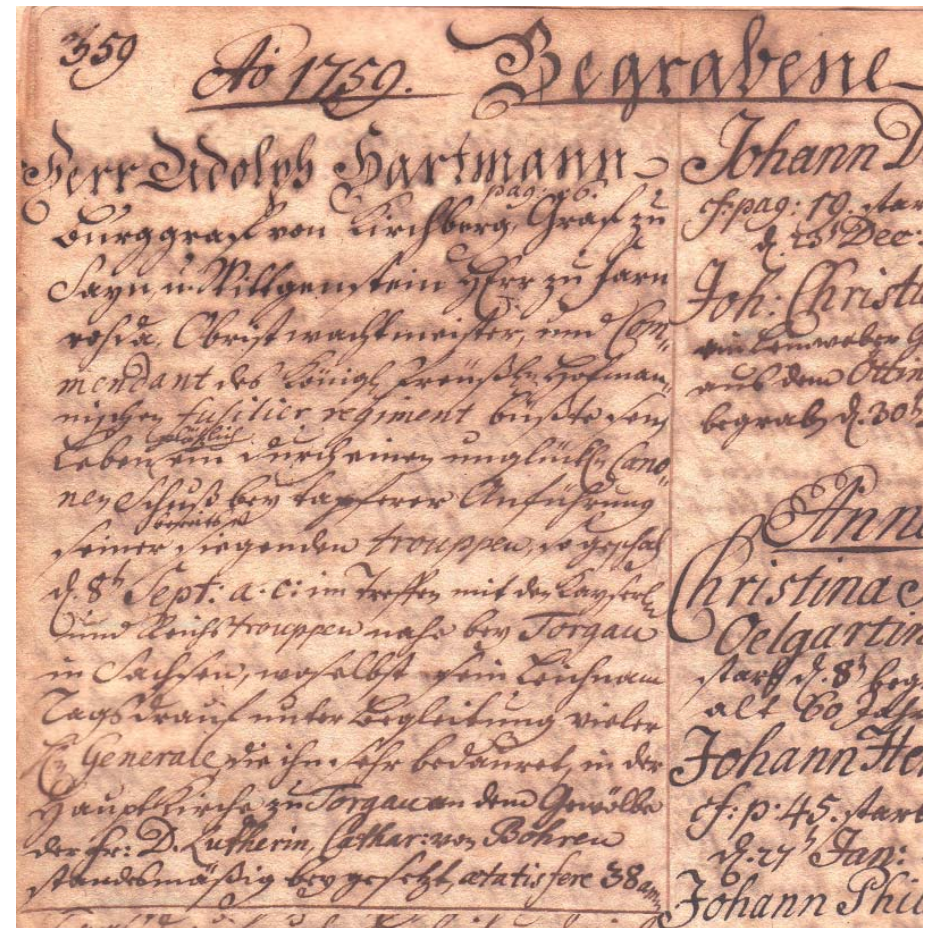 359
Ao 1759. Begrabene
Herr Adolph Hartmann
pag: 26.
Burggraf von Kirchberg, Graf zu
Sayn, u. Wittgenstein Herr zu Farn
roda, Obristwachtmeister, und Com„
mendant des Königl. Preußln Hofman„
nischen fusilier regiment büßte sein
plötzlich
Leben ein durch einen unglückln Cano„
nen Schuß bey tapferer Anführung
bereits
seiner siegenden trouppen, so geschah
d. 8t Sept: a. c: im Treffen mit den Kayserln
und Reichstrouppen nahe bey Torgau
in Sachsen, woselbst sein Leichnam
Tags drauf unter Begleitung vieler
Generale, die ihn sehr bedauret, in der
Hauptkirche zu Torgau an dem Gewölbe
der Fr: D. Lutherin, Cathar: von Bohren
standesmäßig beygesetzt, ætatis fere 38
Johann D
cf. pag: 19. star
d. 23t Dec:
Joh: Christi
ein Leinweber
aus dem Ottin
begrabn d. 30t
Anno
Christina
Oelgartin
starb d. 8t begr
alt 60 Jahr
Johann Hen
cf: p: 45. starb
d. 27t Jan:
Johann Phil